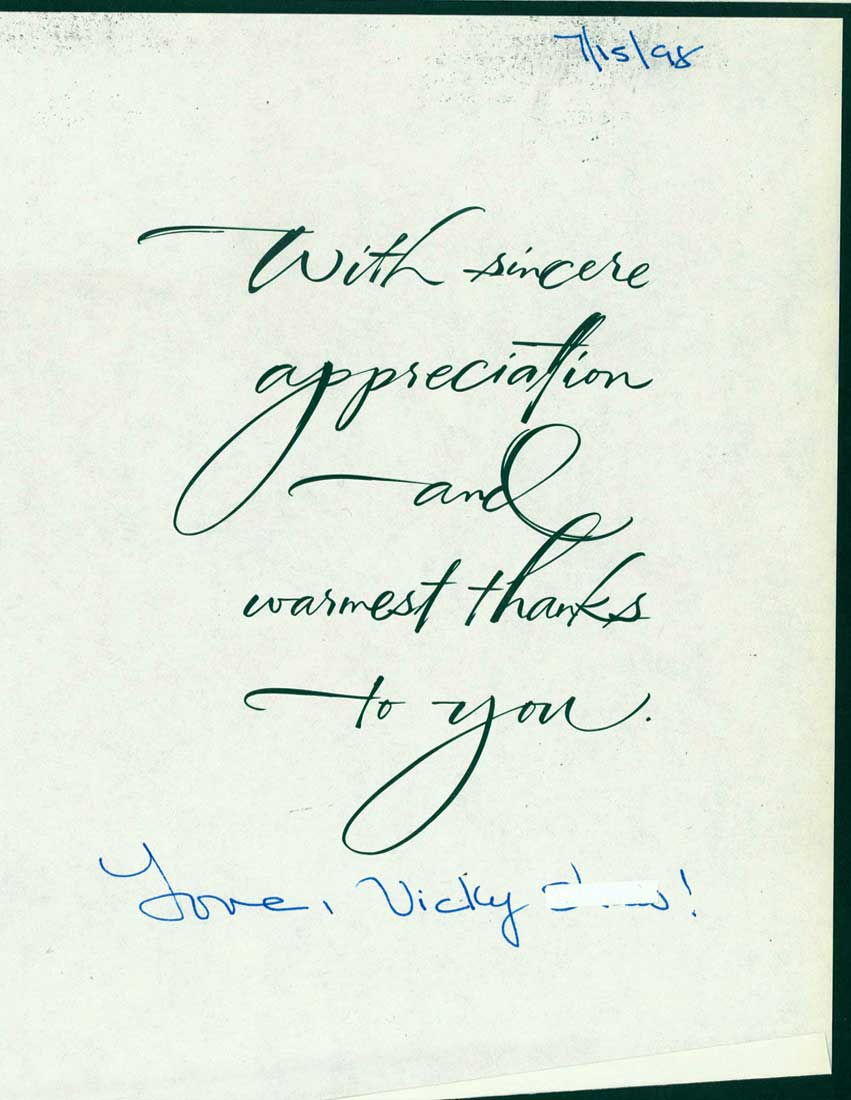 7/15/98
With sincere
appreciation
and
warmest thanks
to you.
Love, Vicky !